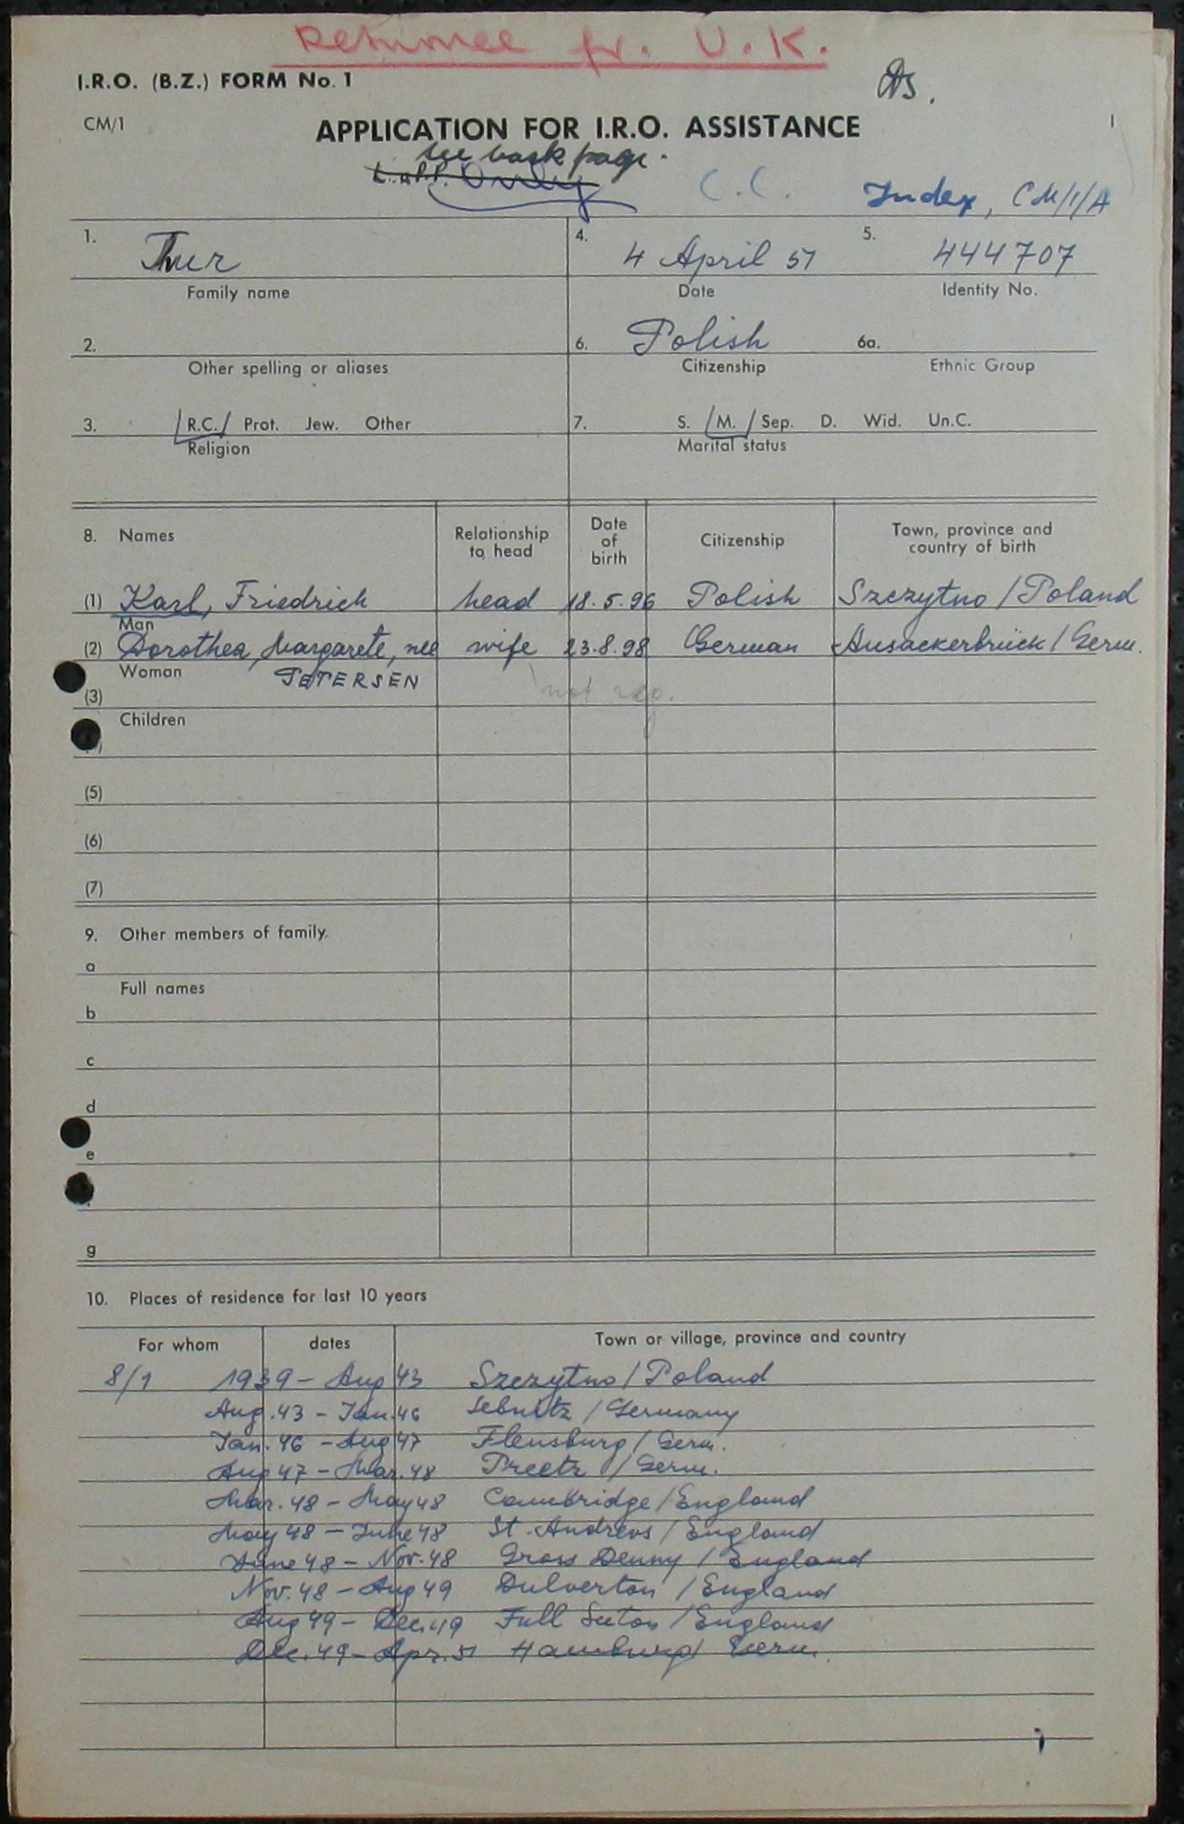 Returnee fr. U.K.
I.R.O. (B.Z.) FORM No. 1
DS.
CM/1
APPLICATION FOR I.R.O. ASSISTANCE
1
see back page.
only
C.C. Index, CM/1/A
1. Thur 4. 4 April 51 5. 444707
Family name Date Identity No.
2. 6. Polish 6a.
Other spelling or aliases Citizenship Ethnic Group
3. R.C. Prot. Jew. Other 7. S. M. Sep. D. Wid. Un.C.
Religion Marital status
8. Names Relationship to head Date of birth Citizenship Town, province and country of birth
(1) Karl, Friedrich head 18.5.96 Polish Szczytno / Poland
Man
(2) Dorothea, Margarete, nee wife 23.8.98 German Ausackerbrück / Germ.
Woman PETERSEN
(3) not reg.
Children
(5)
(6)
(7)
9. Other members of family.
a
Full names
b
c
d
e
g
10. Places of residence for last 10 years
For whom dates Town or village, province and country
8/1 1939 - Aug 43 Szczytno / Poland
Aug. 43 - Jan. 46 Sebnitz / Germany
Jan. 46 - Aug 47 Flensburg / Germ.
Aug 47 - Mar. 48 Preetz / Germ.
Mar. 48 - May 48 Cambridge / England
May 48 - June 48 St. Andrews / England
June 48 - Nov. 48 Gross Denny / England
Nov. 48 - Aug 49 Dulverton / England
Aug 49 - Dec. 49 Full Suton / England
Dec. 49 - Apr. 51 Hamburg / Germ.